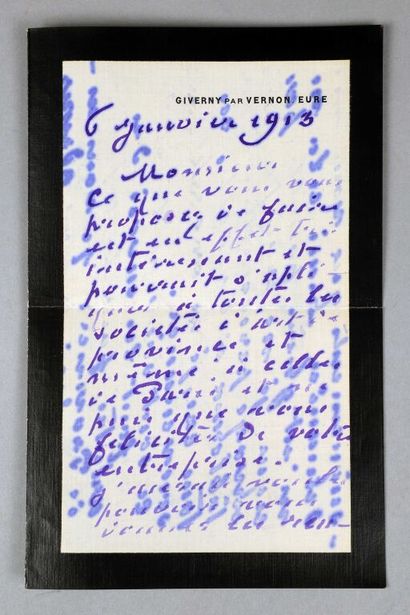 GIVERNY PAR VERNON, EURE
6 janvier 1913
Monsieur
Ce que vous vous
proposez de faire
est en effet très
intéressant et
pourrait s'appli
quer à toutes les
sociétés d'art de
province et
même à celles
de Paris et ne
puis que vous
féliciter de votre
entreprise.
J'aurais voulu
pouvoir vous